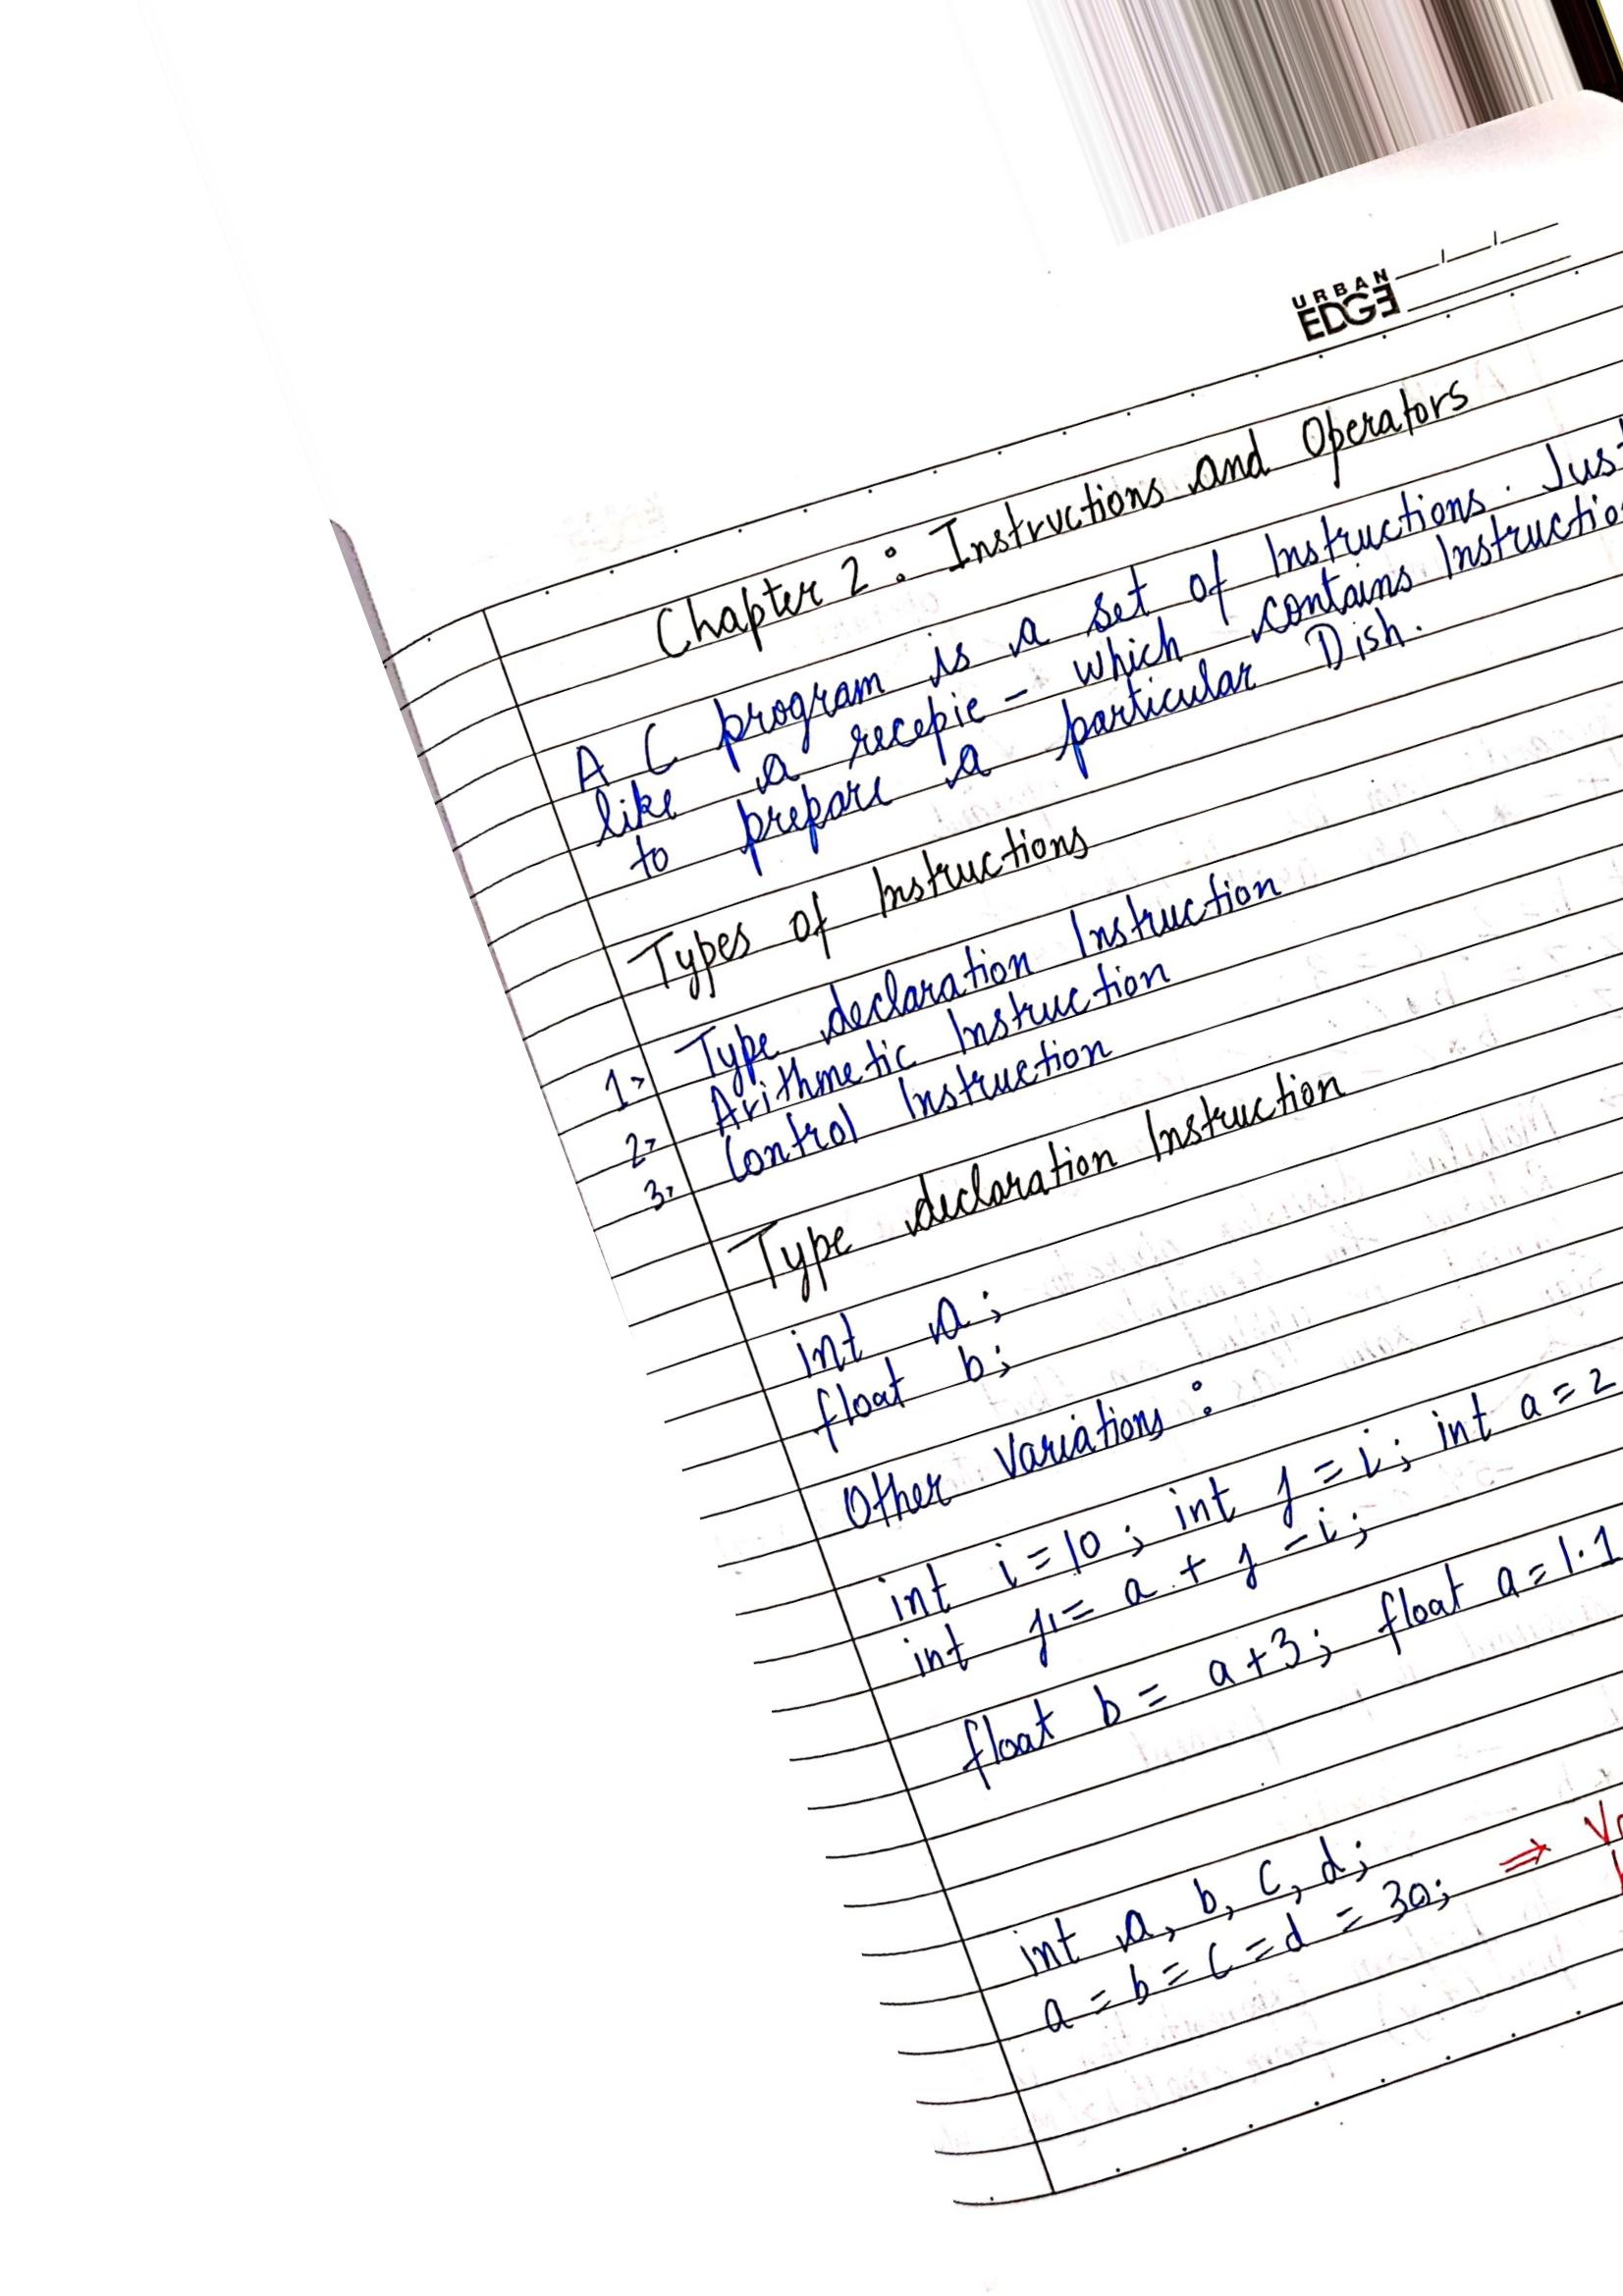 URBAN
EDGE
Chapter 2 : Instructions and Operators
A C program is a set of Instructions. Just
like a recepie - which contains Instructio
to prepare a particular Dish.
Types of Instructions
1. Type declaration Instruction
2. Arithmetic Instruction
3. Control Instruction
Type declaration Instruction
int a;
float b;
Other Variations :
int i = 10 ; int j = i ; int a = 2
int j1 = a + j - i ;
float b = a+3 ; float a = 1.1
int a, b, c, d;
a = b = c = d = 30; ⇒